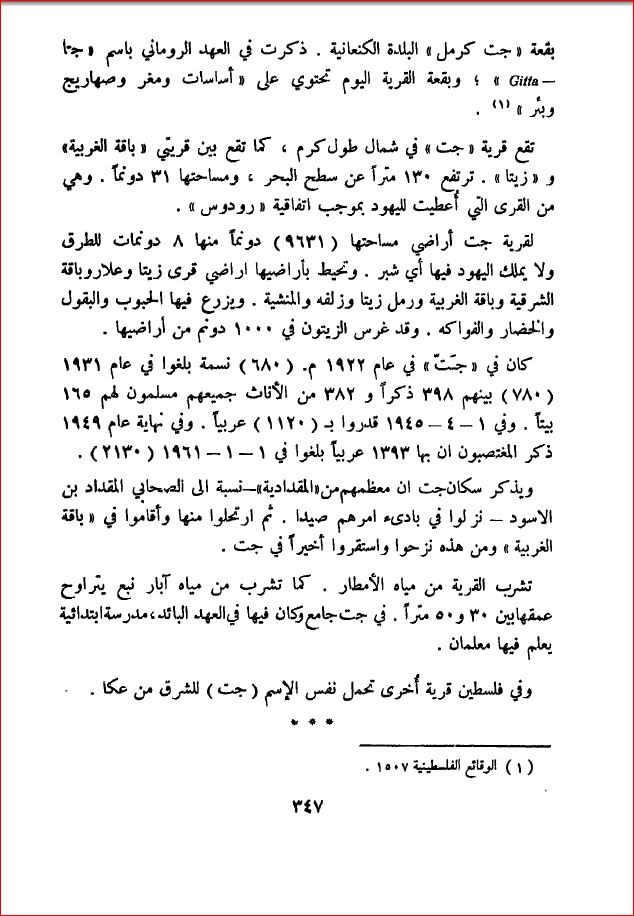 بقعة « جت كرمل » البلدة الكنعانية . ذكرت في العهد الروماني باسم « جتا
— Gitta » ؛ وبقعة القرية اليوم تحتوي على « أساسات ومغر وصهاريج
وبئر » (١) .
تقع قرية « جت » في شمال طولكرم ، كما تقع بين قريتي « باقة الغربية »
و « زيتا » . ترتفع ١٣٠ متراً عن سطح البحر ، ومساحتها ٣١ دونماً . وهي
من القرى التي أُعطيت لليهود بموجب اتفاقية « رودوس » .
لقرية جت أراضي مساحتها ( ٩٦٣١ ) دونماً منها ٨ دونمات للطرق
ولا يملك اليهود فيها أي شبر . وتحيط بأراضيها اراضي قرى زيتا وعلار وباقة
الشرقية وباقة الغربية ورمل زيتا وزلفه والمنشية . ويزرع فيها الحبوب والبقول
والخضار والفواكه . وقد غرس الزيتون في ١٠٠٠ دونم من أراضيها .
كان في « جَتّ » في عام ١٩٢٢ م. ( ٦٨٠ ) نسمة بلغوا في عام ١٩٣١
( ٧٨٠ ) بينهم ٣٩٨ ذكراً و ٣٨٢ من الأناث جميعهم مسلمون لهم ١٦٥
بيتاً . وفي ١ – ٤ – ١٩٤٥ قدروا بـ ( ١١٢٠ ) عربياً . وفي نهاية عام ١٩٤٩
ذكر المغتصبون ان بها ١٣٩٣ عربياً بلغوا في ١ – ١ – ١٩٦١ ( ٢١٣٠ ) .
ويذكر سكان جت ان معظمهم من « المقدادية » – نسبة الى الصحابي المقداد بن
الاسود – نزلوا في بادىء امرهم صيدا . ثم ارتحلوا منها وأقاموا في « باقة
الغربية » ومن هذه نزحوا واستقروا أخيراً في جت .
تشرب القرية من مياه الأمطار . كما تشرب من مياه آبار نبع يتراوح
عمقها بين ٣٠ و ٥٠ متراً . في جت جامع وكان فيها في العهد البائد ، مدرسة ابتدائية
يعلم فيها معلمان .
وفي فلسطين قرية أُخرى تحمل نفس الإسم ( جت ) للشرق من عكا .
* * *
( ١ ) الوقائع الفلسطينية ١٥٠٧ .
٣٤٧